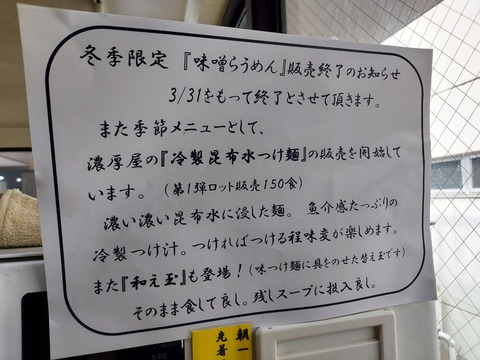 冬季限定『味噌らうめん』販売終了のお知らせ
3/31をもって終了とさせて頂きます。
また季節メニューとして、
濃厚屋の『冷製昆布水つけ麺』の販売を開始して
います。（第1弾ロット販売150食）
濃い濃い昆布水に浸した麺。魚介感たっぷりの
冷製つけ汁。つければつける程味変が楽しめます。
また『和え玉』も登場！（味つけ麺に具をのせた替え玉です）
そのまま食して良し。残しスープに投入良し。
朝一
先着